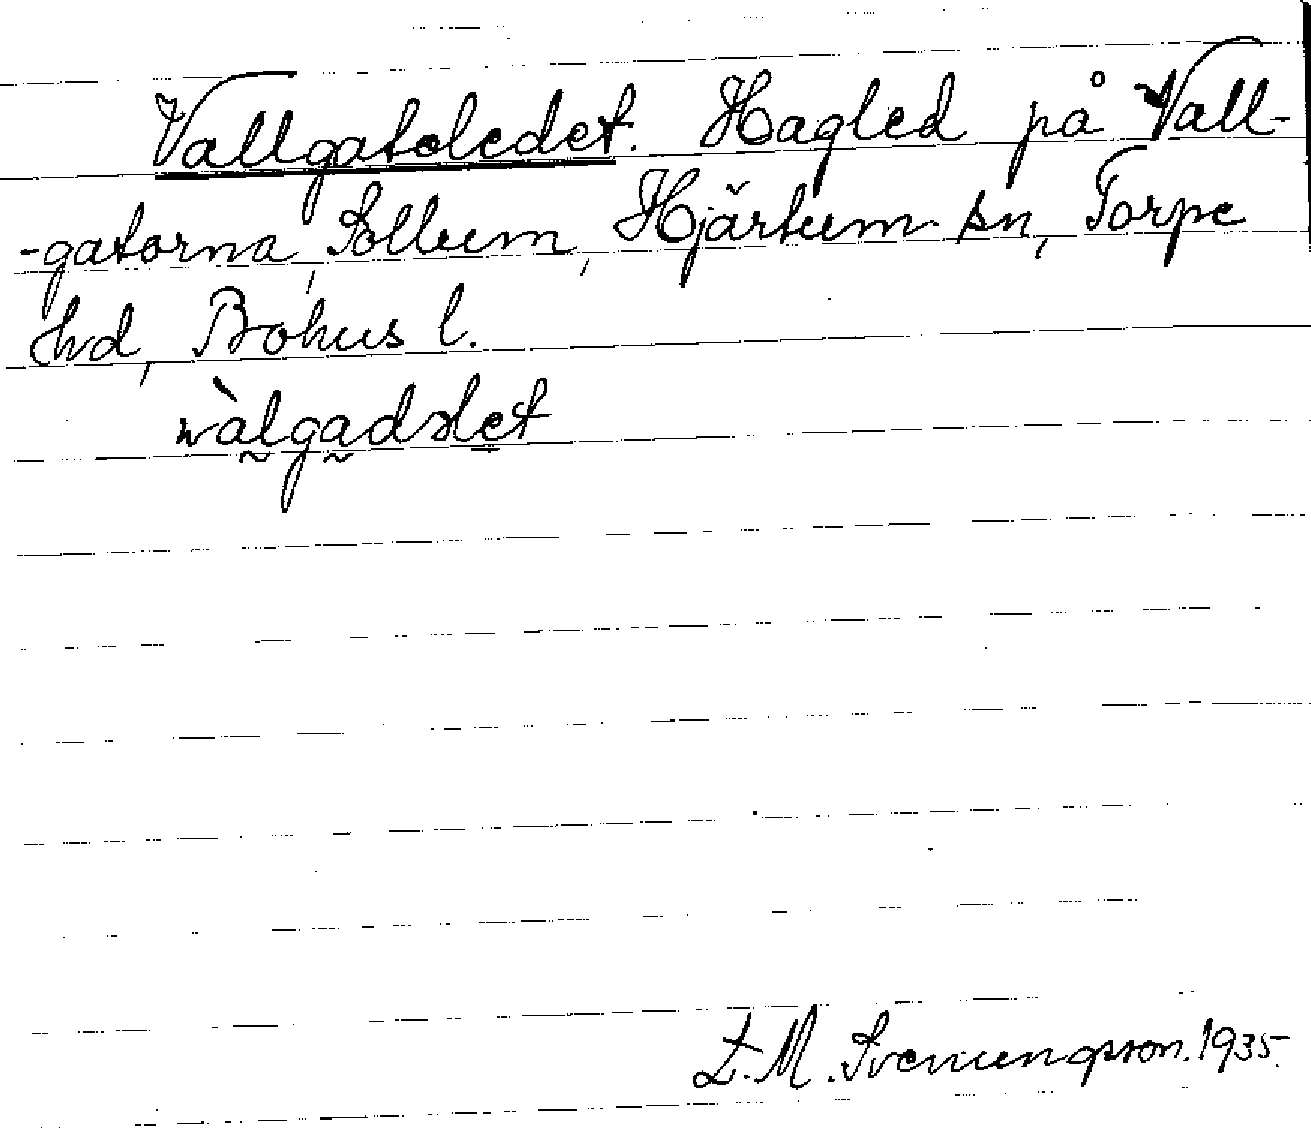 Vallgatoledet. Hagled på Vall-
-gatorna, Sollum, Hjärtum sn, Torpe
hd, Bohus l.
wàlgadslet
L. M. Svenungsson. 1935.